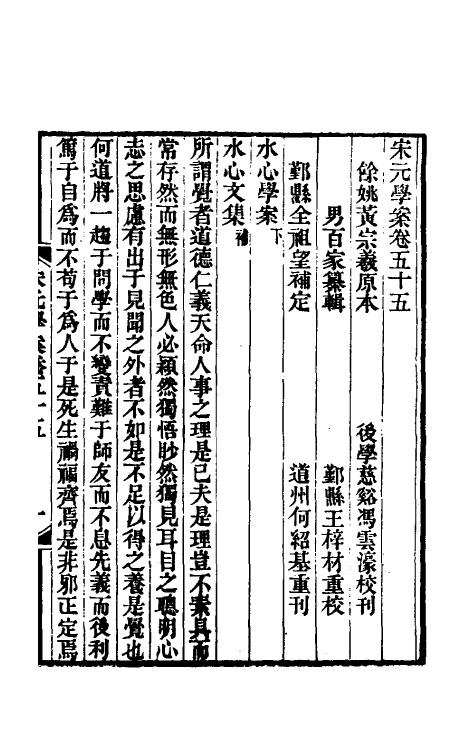 宋元學案卷五十五
餘姚黃宗羲原本
後學慈谿馮雲濠校刊
男百家纂輯
鄞縣王梓材重校
鄞縣全祖望補定
道州何紹基重刊
水心學案下
水心文集補
所謂覺者道德仁義天命人事之理是已夫是理豈不素具而
常存然而無形無色人必穎然獨悟眇然獨見耳目之聰明心
志之思慮有出于見聞之外者不如是不足以得之養是覺也
何道將一趨于問學而不變責難于師友而不息先義而後利
篤于自爲而不苟于爲人于是死生禍福齊焉是非邪正定焉
宋元學案卷五十五
一